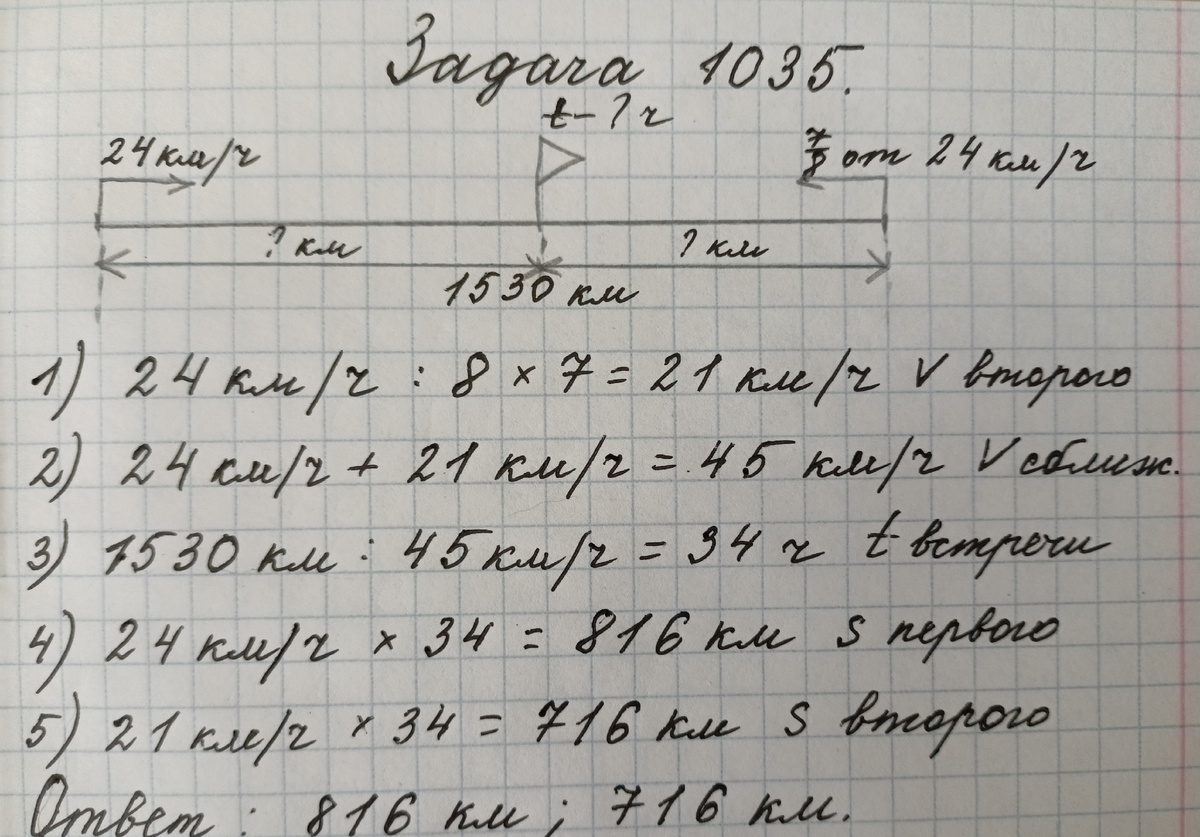 Задача 1035.
t - ? ч
24 км/ч
7/8 от 24 км/ч
? км
? км
1530 км
1) 24 км/ч : 8 × 7 = 21 км/ч V второго
2) 24 км/ч + 21 км/ч = 45 км/ч V сближ.
3) 1530 км : 45 км/ч = 34 ч t встречи
4) 24 км/ч × 34 = 816 км S первого
5) 21 км/ч × 34 = 716 км S второго
Ответ : 816 км ; 716 км.